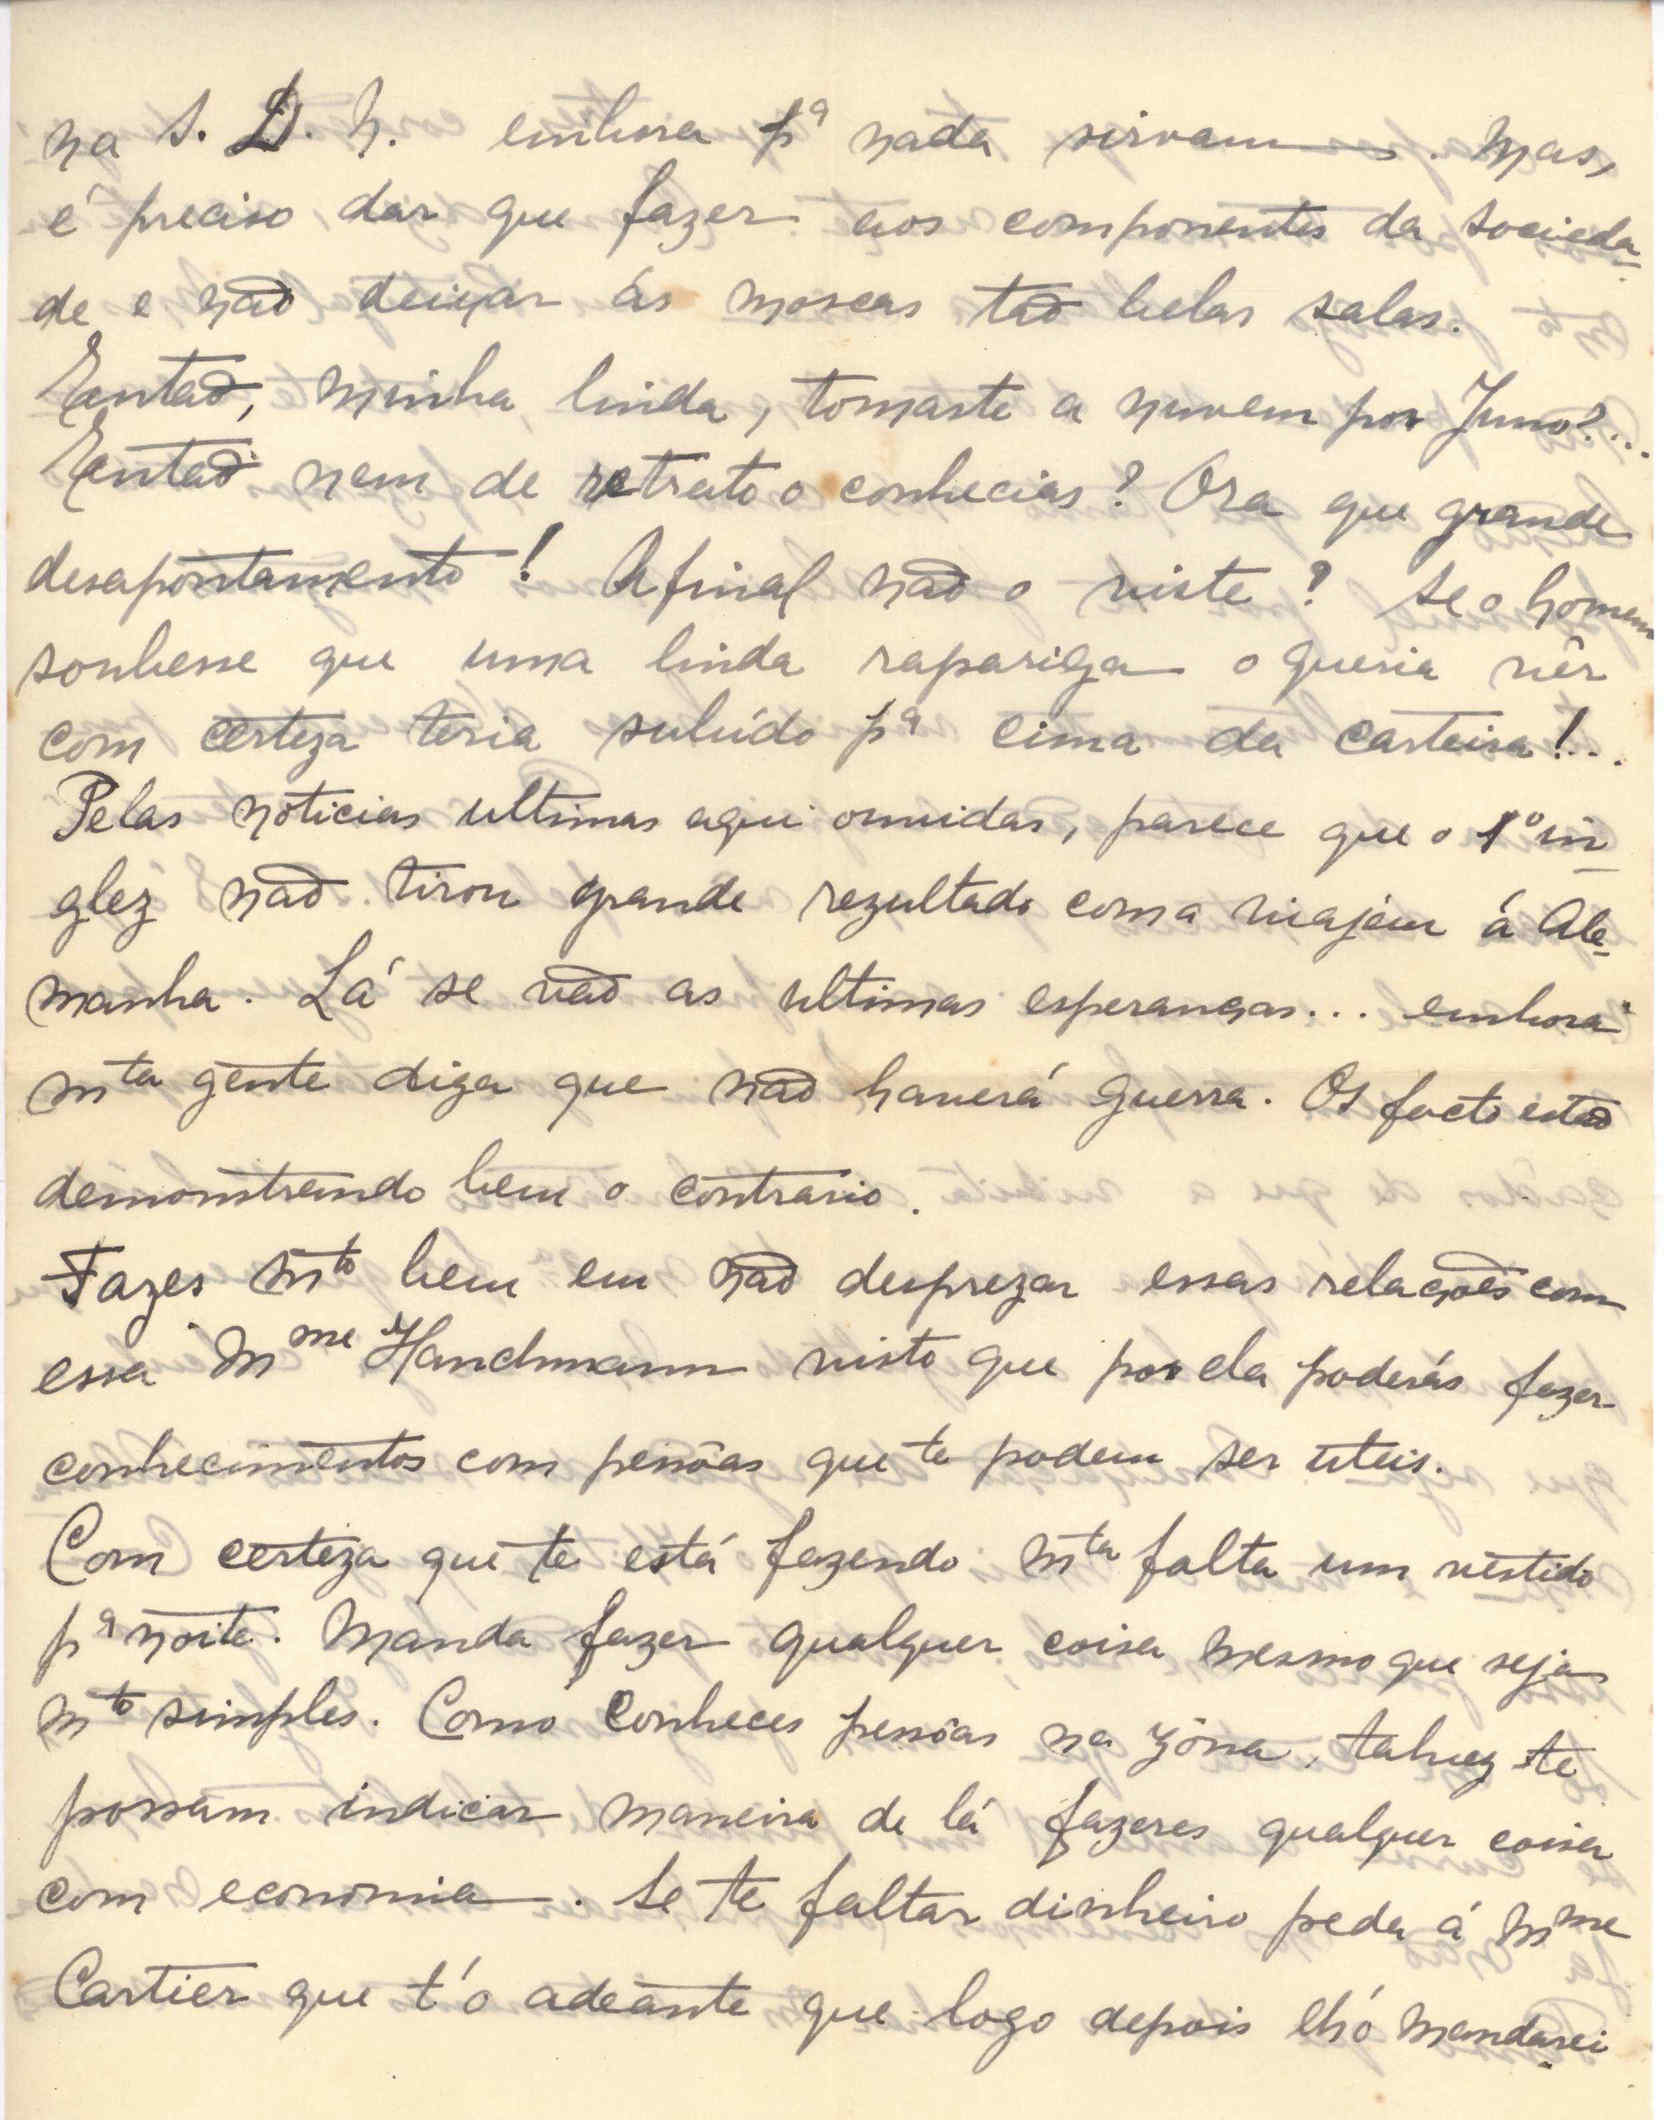 na S. D. N. embora pª nada sirvam. Mas,
é preciso dar que fazer aos componentes da socieda-
de e não deixar ás moscas tão belas salas.
Então, minha linda, tomaste a nuvem por Juno?...
Então nem de retrato o conhecias? Ora que grande
desapontamento! Afinal não o viste? Se o homem
soubesse que uma linda rapariga o queria vêr
com certeza teria subído pª cima da carteira!...
Pelas noticias ultimas aqui ouvidas, parece que o 1º in-
glez não tirou grande rezultado com a viajem á Ale-
manha. Lá se vão as ultimas esperanças... embora
mta gente diga que não haverá guerra. Os facto estão
demonstrando bem o contrario.
Fazes mto bem em não desprezar essas relações com
essa Mme Handmann visto que por ela poderás fazer
conhecimentos com pessôas que te podem ser uteis.
Com certeza que te está fazendo mta falta um vestido
pª noite. Manda fazer qualquer coisa mesmo que seja
mto simples. Como conheces pessôas na zôna, talvez te
possam indicar maneira de lá fazeres qualquer coisa
com economia. Se te faltar dinheiro peda á Mme
Cartier que t'o adeante que logo depois lh'ó mandarei